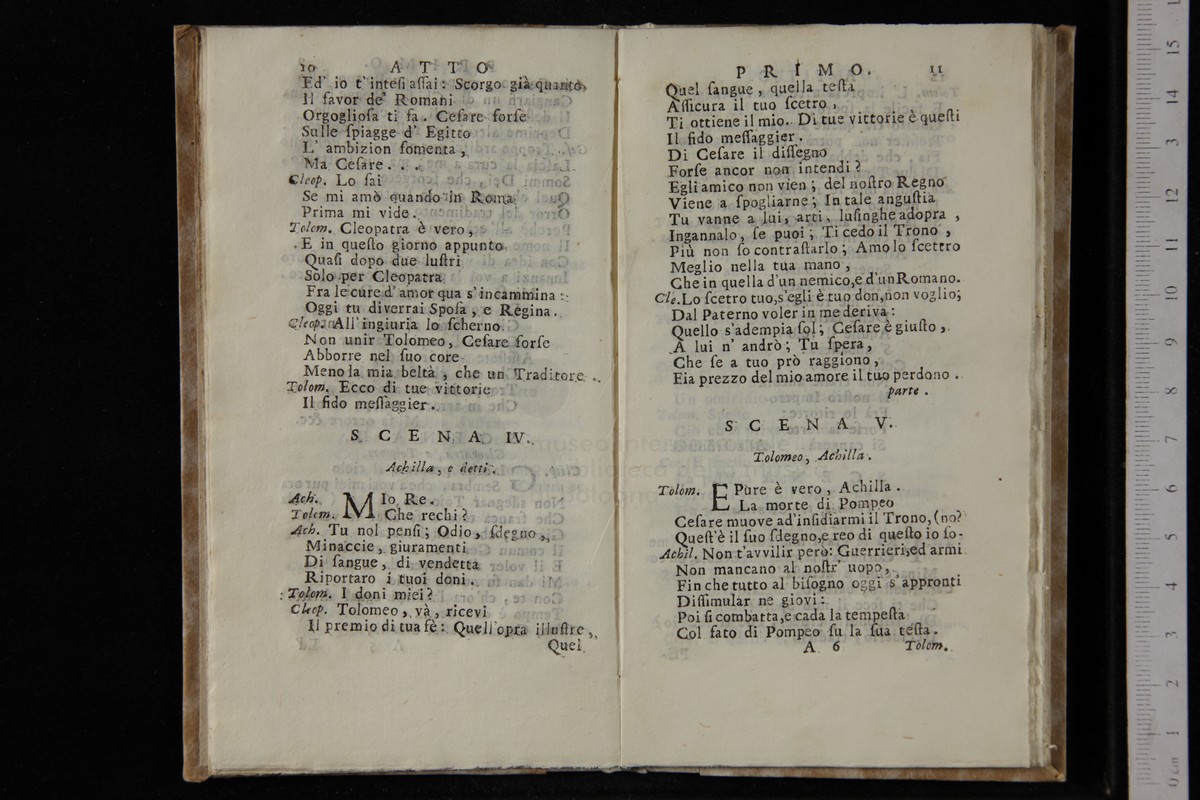 10 ATTO
Ed' io t' intesi assai: Scorgo già quanto,
Il favor de' Romani
Orgogliosa ti fa. Cesare forse
Sulle spiagge d' Egitto
L' ambizion fomenta,
Ma Cesare....
Cleop. Lo sai
Se mi amò quando in Roma
Prima mi vide.
Tolom. Cleopatra è vero,
E in questo giorno appunto
Quasi dopo due lustri
Solo per Cleopatra
Fra le cure d' amor qua s' incammina:
Oggi tu diverrai Sposa, e Regina.
Cleop. All' ingiuria lo scherno.
Non unir Tolomeo, Cesare forse
Abborre nel suo core
Meno la mia beltà, che un Traditore.
Tolom. Ecco di tue vittorie
Il fido messaggier.
SCENA IV.
Achilla, e detti.
Ach. MIo Re.
Tolom. Che rechi?
Ach. Tu nol pensi; Odio, sdegno,
Minaccie, giuramenti
Di sangue, di vendetta
Riportaro i tuoi doni.
Tolom. I doni miei?
Cleop. Tolomeo, và, ricevi
Il premio di tua fè: Quell'opra illustre,
Quel
PRIMO. 11
Quel sangue, quella testa
Assicura il tuo scetro,
Ti ottiene il mio. Di tue vittorie è questi
Il fido messaggier.
Di Cesare il dissegno
Forse ancor non intendi?
Egli amico non vien; del nostro Regno
Viene a spogliarne; In tale angustia
Tu vanne a lui, arti, lusinghe adopra,
Ingannalo, se puoi; Ti cedo il Trono,
Più non so contrastarlo; Amo lo scettro
Meglio nella tua mano,
Che in quella d'un nemico,e d'un Romano.
Cle. Lo scetro tuo,s'egli è tuo don,non voglio;
Dal Paterno voler in me deriva:
Quello s'adempia sol; Cesare è giusto,
A lui n' andrò; Tu spera,
Che se a tuo prò raggiono,
Fia prezzo del mio amore il tuo perdono.
parte.
SCENA V.
Tolomeo, Achilla.
Tolom. EPure è vero, Achilla.
La morte di Pompeo
Cesare muove ad'insidiarmi il Trono, (no?
Quest'è il suo sdegno,e reo di questo io so-
Achil. Non t'avvilir però: Guerrieri,ed armi
Non mancano al nostr' uopo,
Fin che tutto al bisogno oggi s'appronti
Dissimular ne giovi:
Poi si combatta,e cada la tempesta
Col fato di Pompeo su la sua testa.
A 6 Tolom.